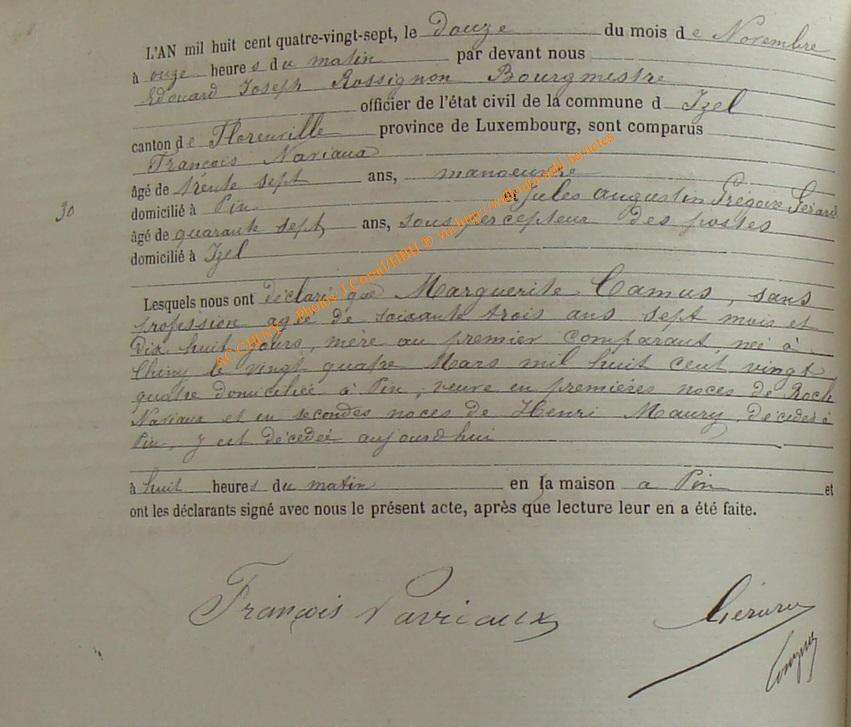 L'AN mil huit cent quatre-vingt-sept, le douze du mois de Novembre
à onze heures du matin par devant nous
Edouard Joseph Rossignon Bourgmestre
officier de l'état civil de la commune d Izel
canton de Florenville province de Luxembourg, sont comparus
François Naviaux
âgé de trente sept ans, manoeuvre
domicilié à Pin et Jules Augustin Grégoire Gérard
âgé de quarante sept ans, sous percepteur des postes
domicilié à Izel
30
Lesquels nous ont déclaré que Marguerite Camus, sans
profession agée de soixante trois ans sept mois et
Dix huit jours, mère au premier comparant, née à
Chiny le vingt quatre Mars mil huit cent vingt
quatre domiciliée à Pin, veuve en premières noces de Roch
Naviaux et en secondes noces de Henri Maury, décédés à
Pin, y est décédée aujourd'hui
à huit heures du matin en la maison a Pin et
ont les déclarants signé avec nous le présent acte, après que lecture leur en a été faite.
François Navriaux
Gérard